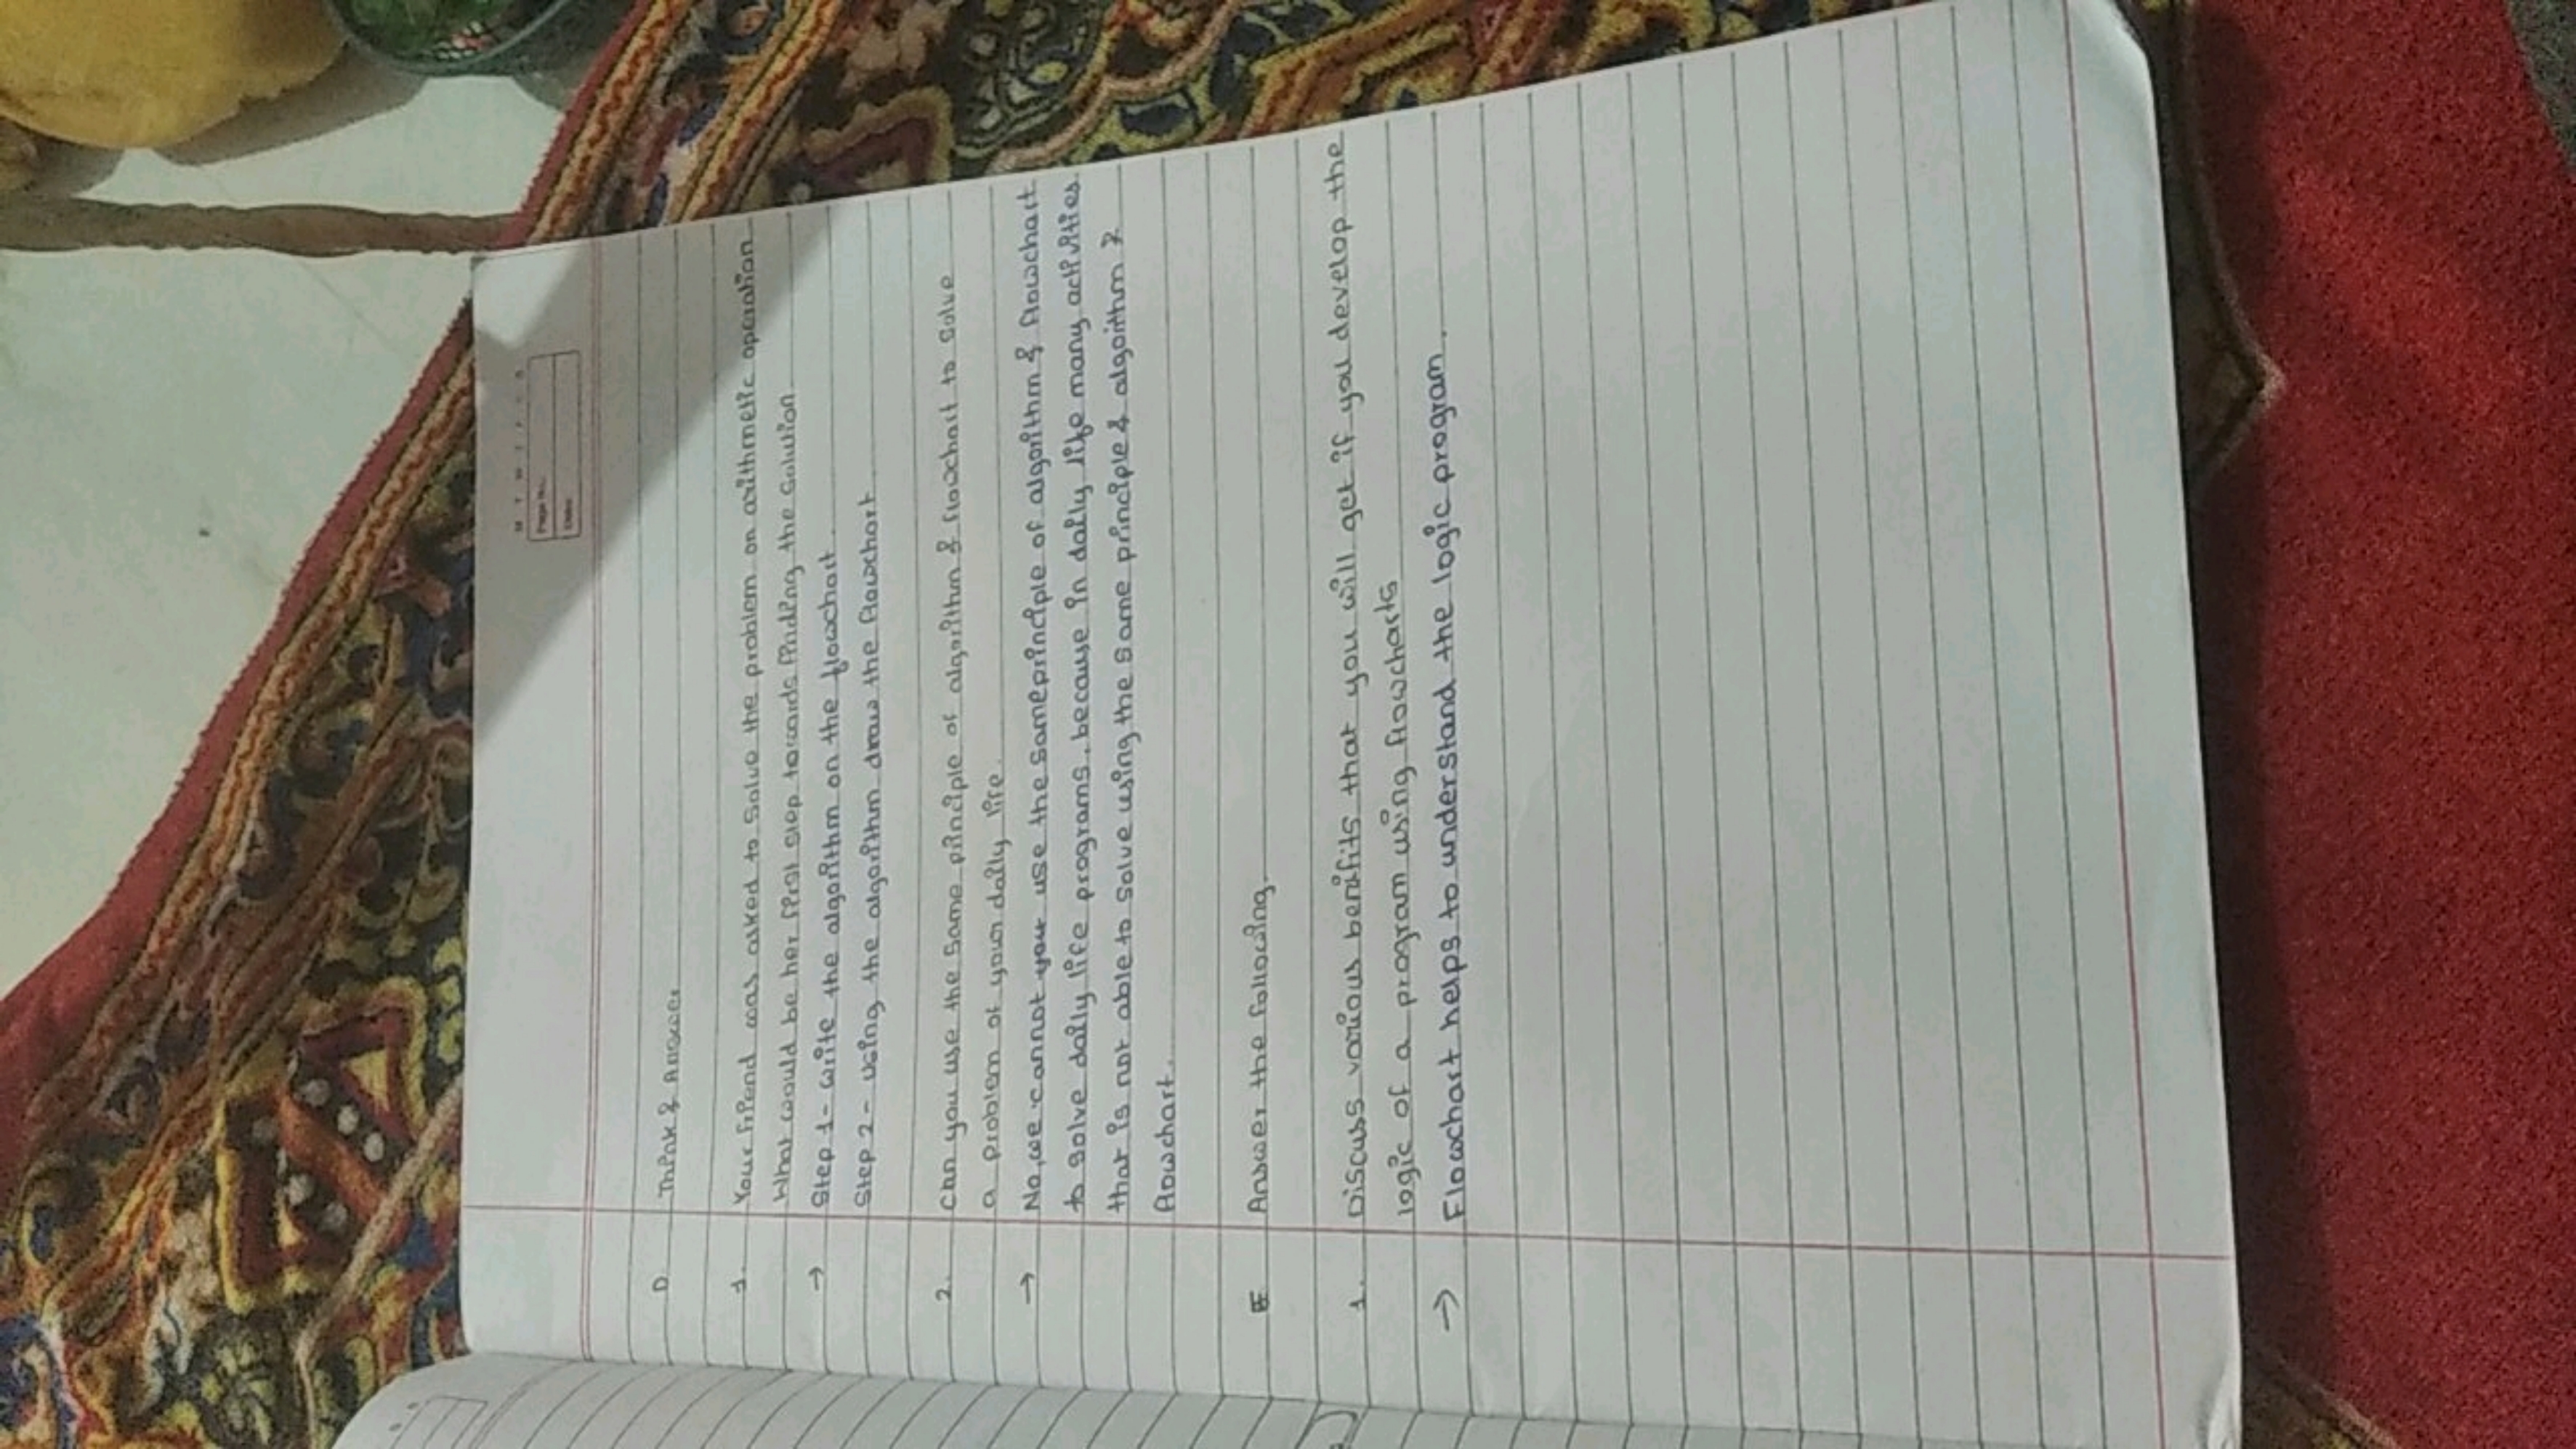 M T W T F S S
Page No.:
Date:
D Think & Answer.
1. Your friend was asked to Solve the problem on arithmetic operation
What would be her first step towards finding the solution
→ Step 1- write the algorithm on the flowchart.
Step 2- using the algorithm draw the flowchart.
2. Can you use the same principle of algorithm & flowchart to solve
a problem of your daily life.
→ No, we cannot your use the same principle of algorithm & flowchart
to solve daily life programs, because in daily life many activities
that is not able to solve using the same principle & algoithm &
flowchart.
E Answer the following.
1. Discuss various benifits that you will get if you develop the
logic of a program using flowcharts
→ Flowchart helps to understand the logic program.